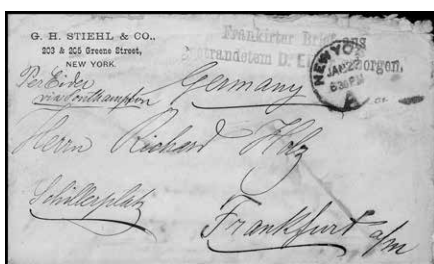 G. H. STIEHL & CO.,
203 & 205 Greene Street,
NEW YORK.
Frankirter Brief aus
gestrandetem D. Eider
geborgen.
NEW YORK
JAN 22
630 PM
A
Per Eider
via Southampton
Germany
Herrn Richard Holz
Schillerplatz
Frankfurt a/m